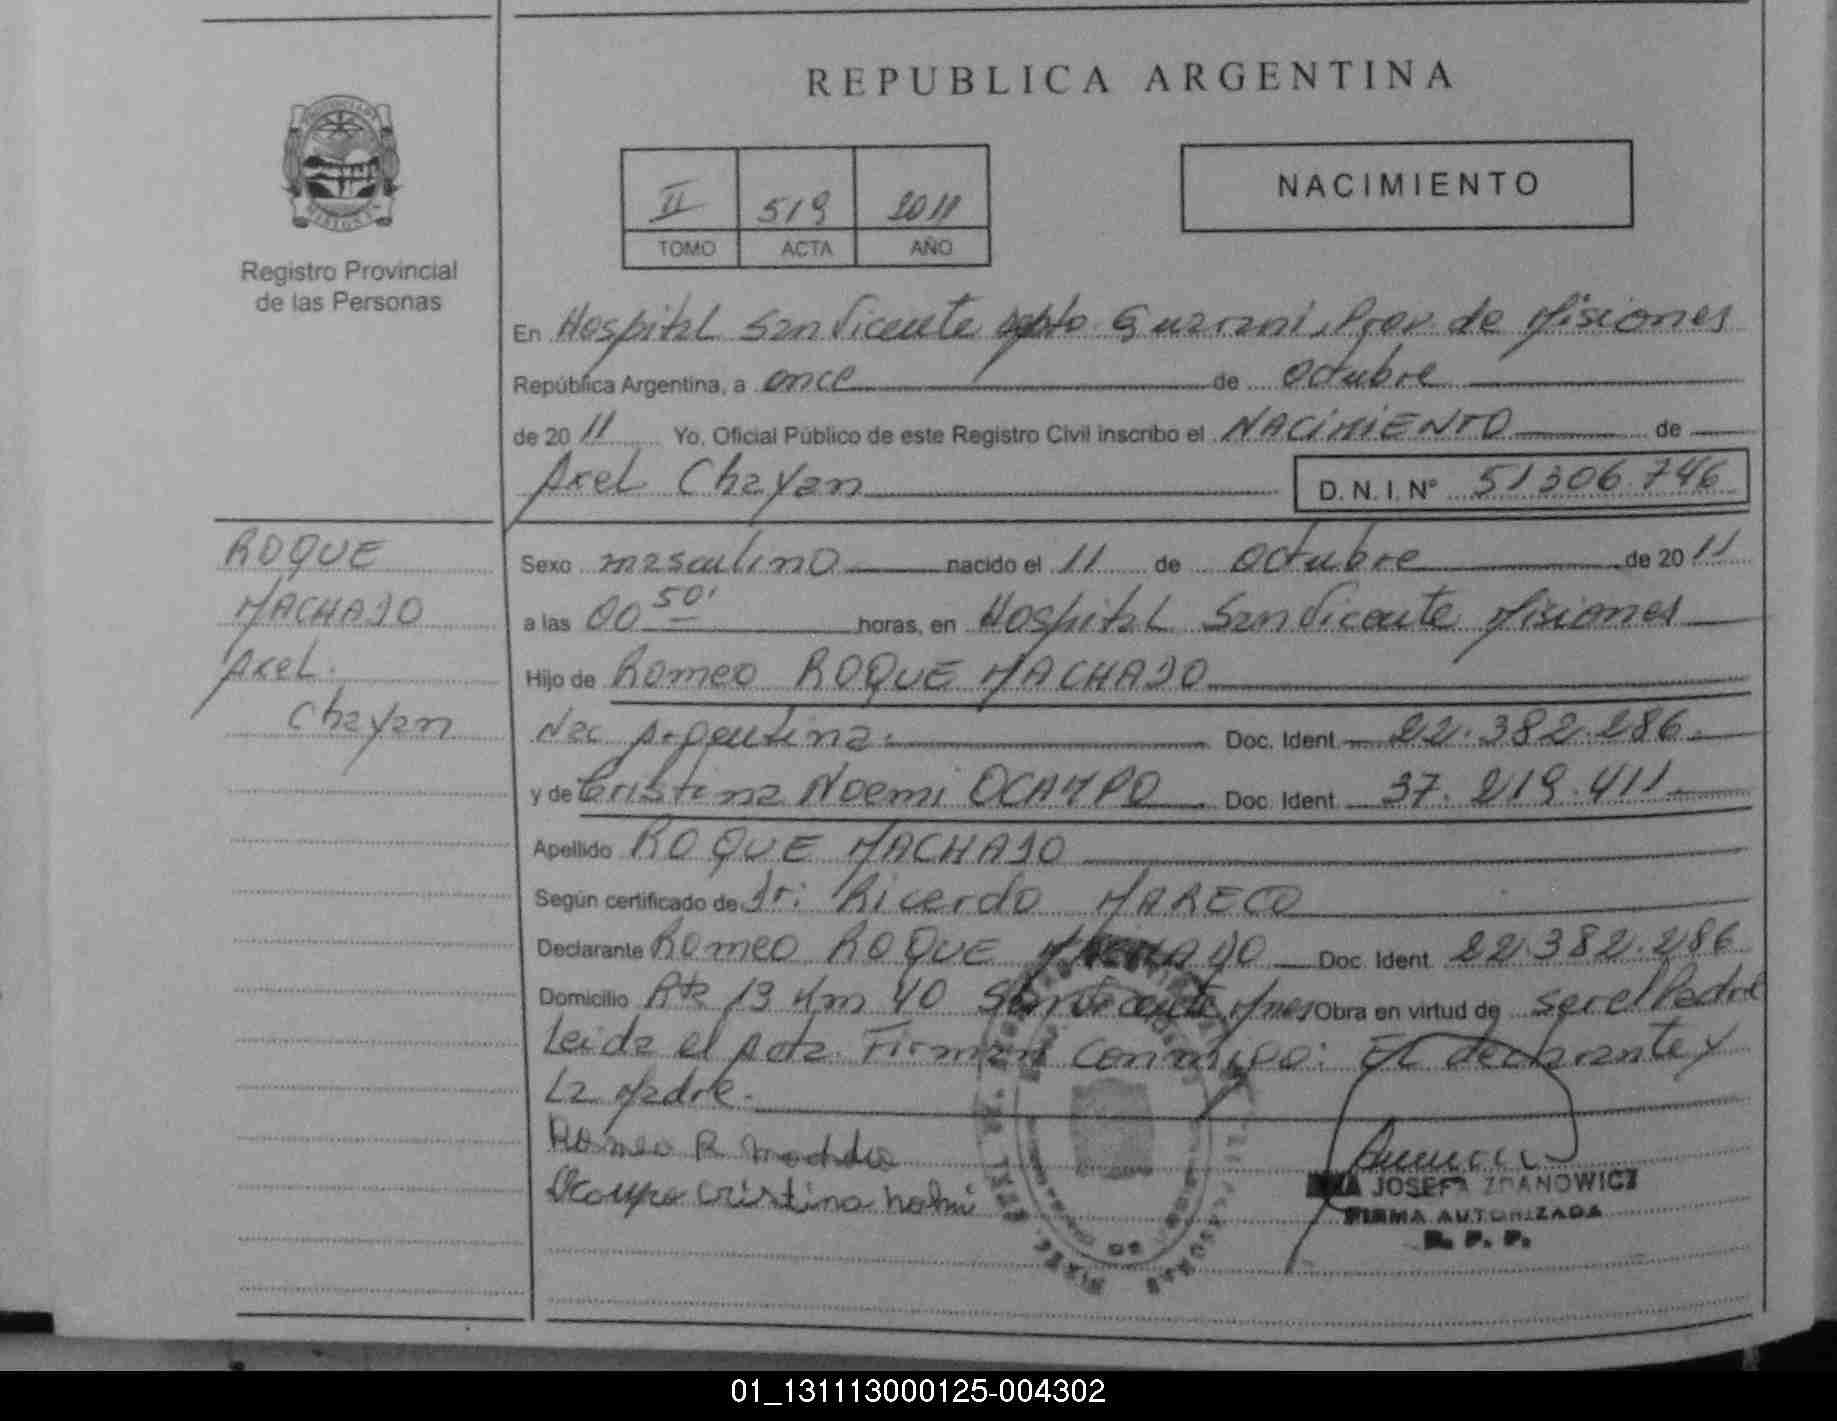 REPUBLICA ARGENTINA
II 519 2011
TOMO ACTA AÑO
NACIMIENTO
Registro Provincial
de las Personas
En Hospital San Vicente dpto Guarani, Prov. de Misiones
República Argentina, a once de octubre
de 2011 Yo, Oficial Público de este Registro Civil inscribo el NACIMIENTO de
Axel Chayan D. N. I. Nº 51306.746
ROQUE
MACHADO
Axel
Chayan
Sexo masculino nacido el 11 de octubre de 2011
a las 00 50' horas, en Hospital San Vicente Misiones
Hijo de Romeo ROQUE MACHADO
Nac Argentina. Doc. Ident 22.382.286.
y de Cristina Noemi OCAMPO Doc. Ident 37.219.411.
Apellido ROQUE MACHADO
Según certificado de Dr: Ricardo MARECO
Declarante Romeo ROQUE MACHADO Doc. Ident 22382.286
Domicilio Rta 13 Km 40 San Vicente Mnes Obra en virtud de ser el Padre
Leida el Acta Firman conmigo: El declarante y
La Madre.
Romeo R
Ocampo Cristina Noemi
JOSEFA ZDANOWICZ
FIRMA AUTORIZADA
R. P. P.
01_131113000125-004302